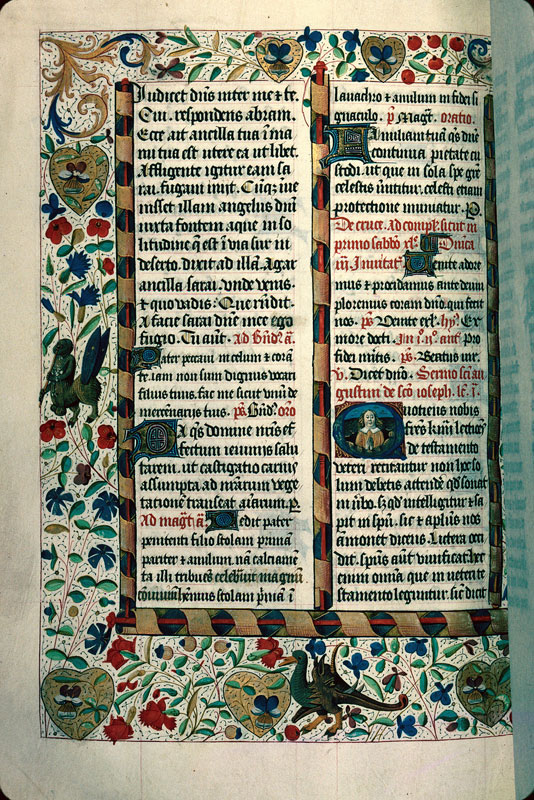 Judicet dñs inter me & te.
Cui respondens abram.
Ecce ait ancilla tua ī ma
nu tua est utere ea ut libet.
Affligente igitur eam sa
rai. fugam iniit. Cūq; īue
nisset illam angelus dñi
iuxta fontem aque in so
litudine q̄ est ī via sur in
deserto. dixit ad illā. Agar
ancilla sarai. unde venis.
& quo vadis. Que rñdit.
A facie sarai dñe mee ego
fugio. Tu aut̄. Ad Bñd̄. a͞.
Pater peccaui in celum & corā
te. iam non sum dignus vocari
filius tuus. fac me sicut unū de
mercēnariis tuis. p̄s Bñd̄. orō
Da q̄s domine nr̄is ef
fectum ieiuniis salu
tarem. ut castigatio carnis
assumpta ad nr̄arum vege
tationē transeat aīarum. P.
Ad mag̃t a͞. Dedit pater
penitenti filio stolam primā
pariter & anulum. nā calciamē
ta illi tribuēs celebrauit magnū
conuiuiū habemus stolam primā ī
lauachro & anulum in fidei si
gnaculo. p̄ Mag̃t. oratio.
Familiam tuā q̄s dñe
continua pietate cu
stodi. ut que in sola spe grē
celestis īnititur. celesti etiam
protectione muniatur. P.
De cruce. Ad compl̄. sicut in
primo sabbō xl̄. Dñica
iij. Inuitat̄. Venite adore
mus & procidamus ante deum
ploremus coram dñō qui fecit
nos. p̄s Venite exl̄. hȳ. Ex
more docti. In j. n̄. ant̄ Pro
fidei mitis. p̄s. Beatus uir.
v. Dicet dñō. Sermo sc̄i au
gustini de sc̄o ioseph. lc̄. j.
Quotiens nobis
fr̄es kmi lectiōes
de testamento
veteri recitantur non hec so
lum debetis attende q̄d sonat
in ūbo. s; q̄d intelligitur & sa
pit in spū. sic & apl̄us nos
amonet dicens. Littera occi
dit. spūs aut̄ viuificat. hec
enim omia que in uetere te
stamento leguntur. sic dicit